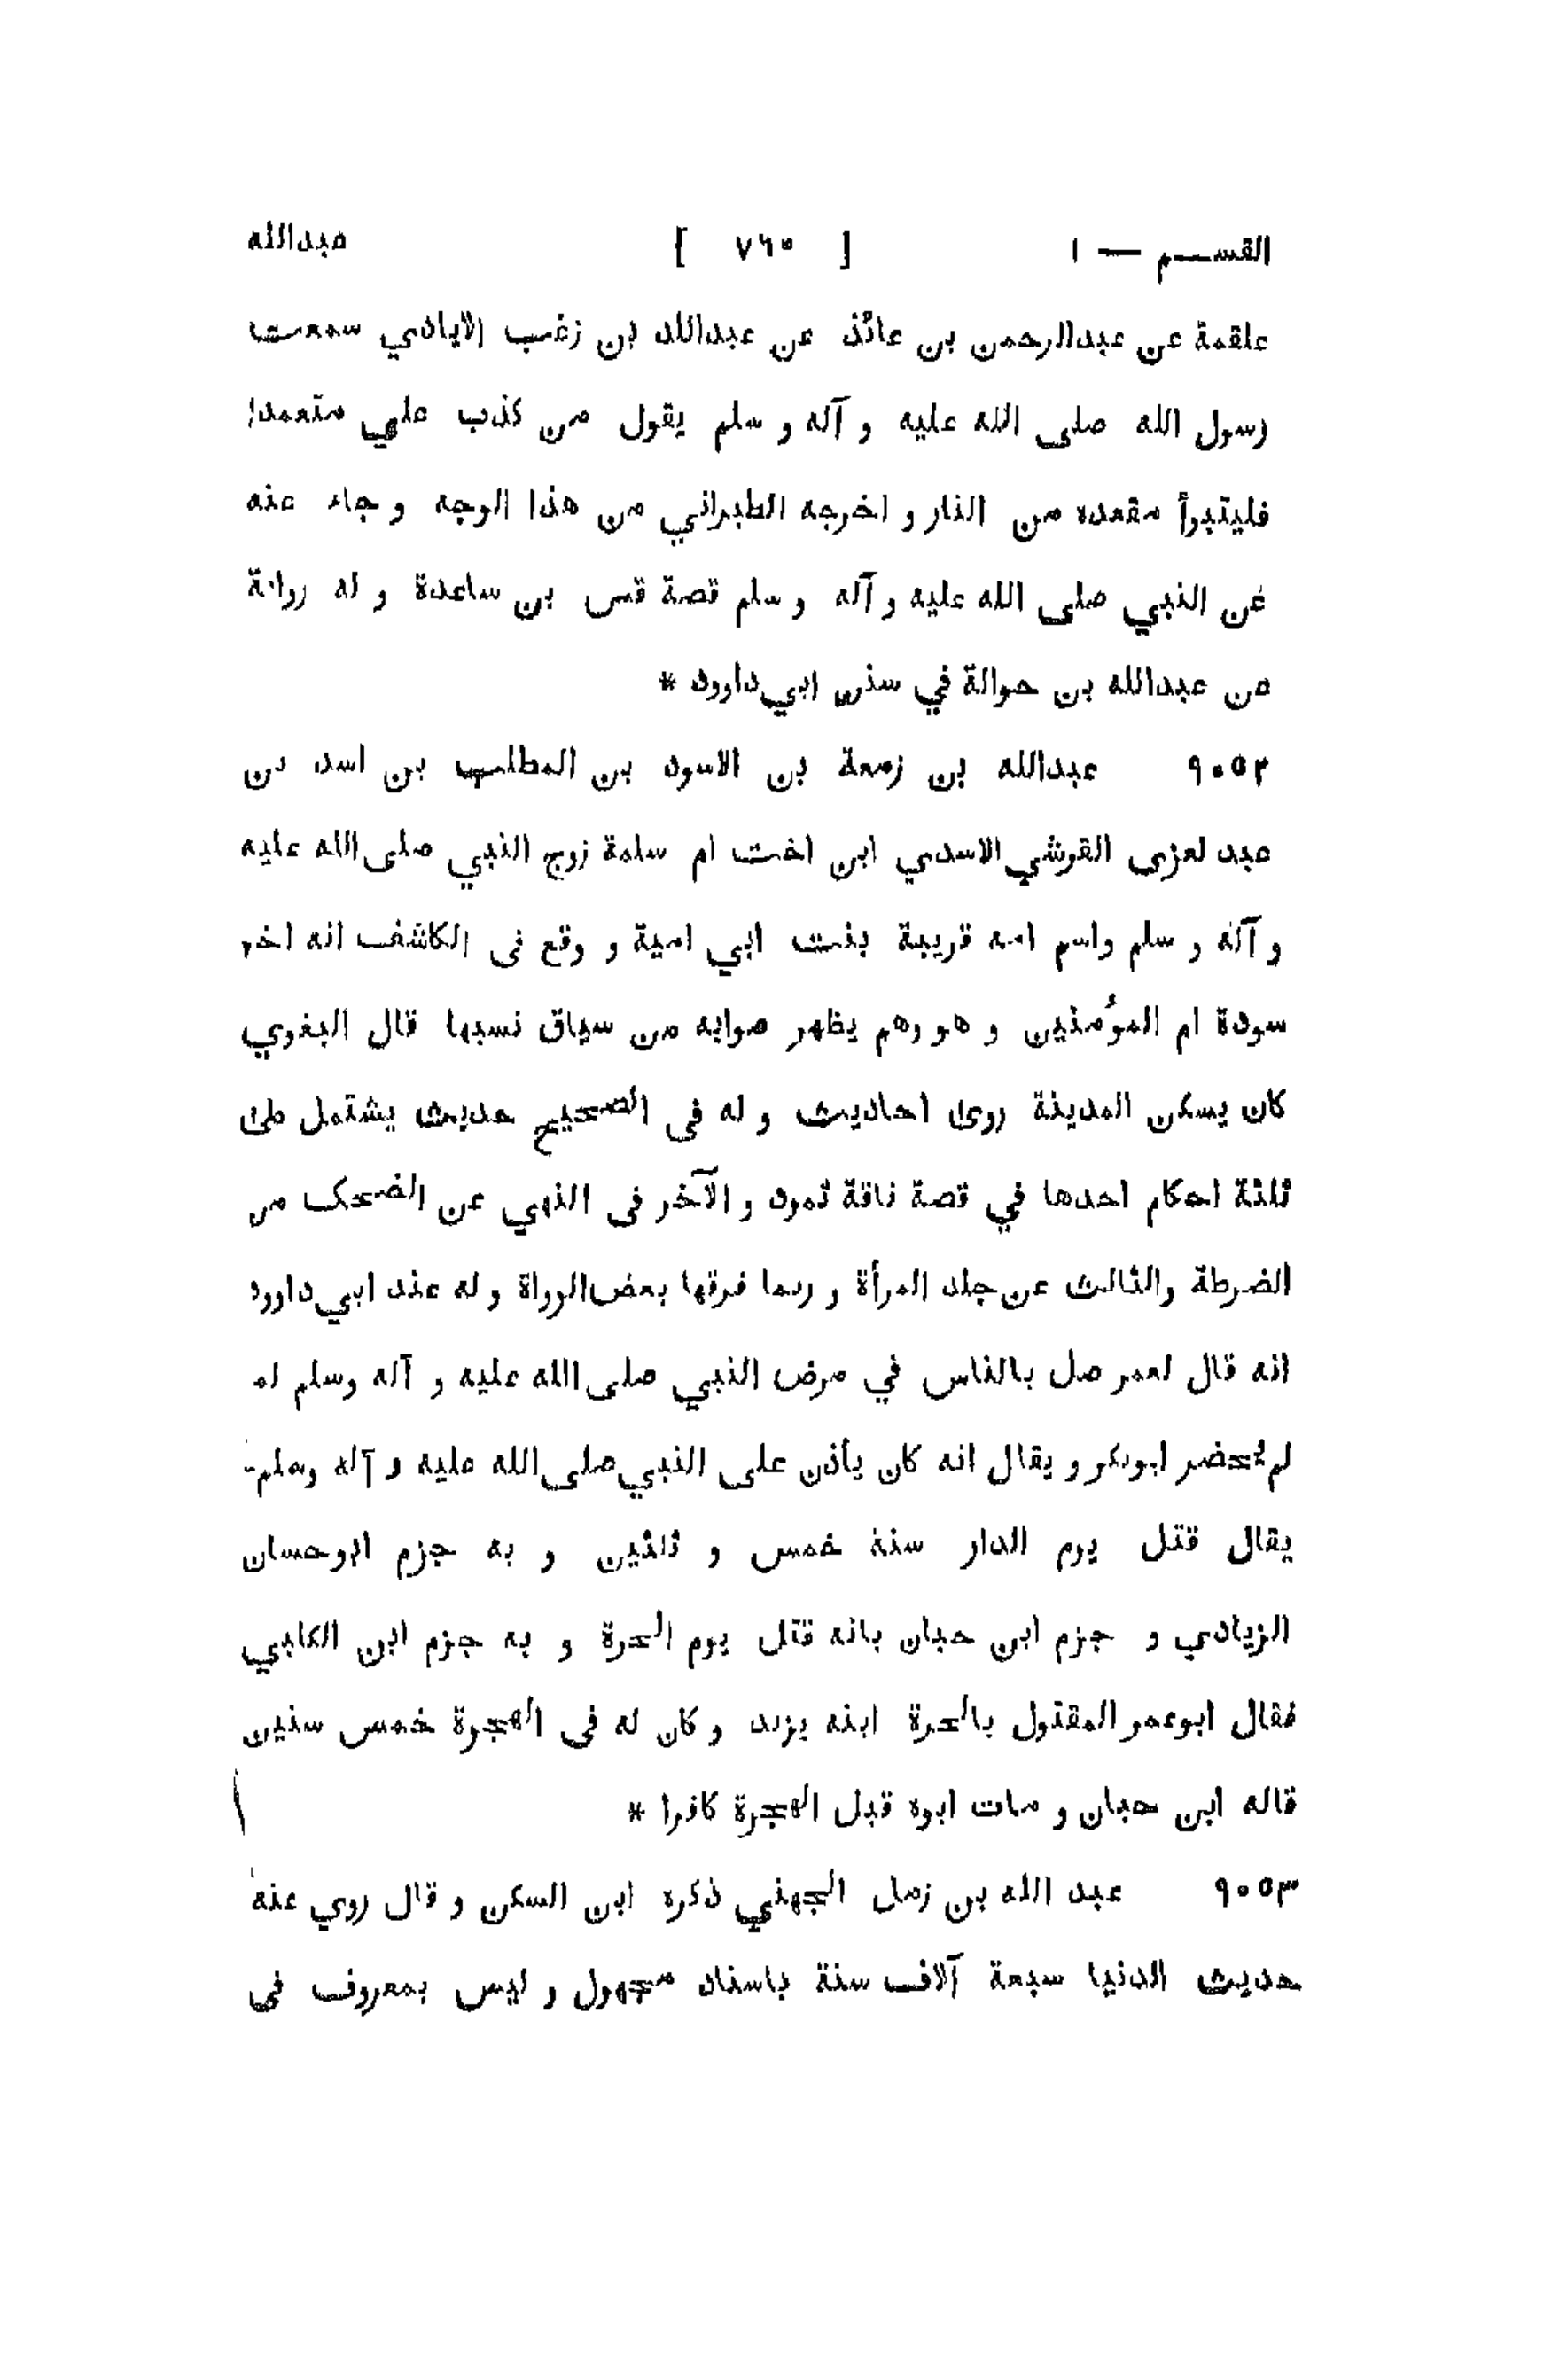 القسم — ١ [ ٧٦٥ ] عبدالله
علقمة عن عبدالرحمن بن عائذ عن عبدالله بن زغب الايادي سمعت
رسول الله صلى الله عليه و آله و سلم يقول من كذب علي متعمدا
فليتبرأ مقعده من النار و اخرجه الطبراني من هذا الوجه و جاء عنه
عن النبي صلى الله عليه و آله و سلم قصة قس بن ساعدة و له رواية
عن عبدالله بن حوالة في سنن ابي داوود *
٩٠٥٢ عبدالله بن زمعة بن الاسود بن المطلب بن اسد بن
عبد لعزى القرشي الاسدي ابن اخت ام سلمة زوج النبي صلى الله عليه
و آله و سلم واسم امه قريبة بنت ابي امية و وقع فى الكاشف انه اخو
سودة ام المؤمنين و هو وهم يظهر صوابه من سياق نسبها قال البغوي
كان يسكن المدينة روى احاديث و له فى الصحيح حديث يشتمل على
ثلثة احكام احدها في قصة ناقة ثمود و الآخر فى النهي عن الضحك من
الضرطة والثالث عن جلد المرأة و ربما فرقها بعض الرواة و له عند ابي داوود
انه قال لعمر صل بالناس في مرض النبي صلى الله عليه و آله وسلم لما
لم يحضر ابوبكر و يقال انه كان يأذن على النبي صلى الله عليه و آله وسلم
يقال قتل يوم الدار سنة خمس و ثلثين و به جزم ابوحسان
الزيادي و جزم ابن حبان بانه قتل يوم الحرة و به جزم ابن الكلبي
فقال ابوعمر المقتول بالحرة ابنه يزيد و كان له فى الهجرة خمس سنين
قاله ابن حبان و مات ابوه قبل الهجرة كافرا *
٩٠٥٣ عبد الله بن زمل الجهني ذكره ابن السكن و قال روي عنه
حديث الدنيا سبعة آلاف سنة باسناد مجهول و ليس بمعروف فى